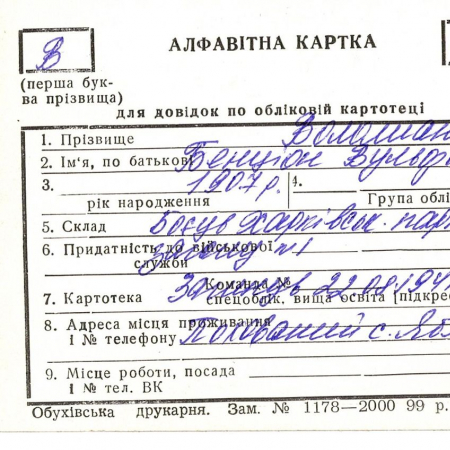 В
АЛФАВІТНА КАРТКА
(перша бук-
ва прізвища)
для довідок по обліковій картотеці
1. Прізвище
2. Ім'я, по батькові Бенціон Вульф
3. 1907 р. 4.
рік народження Група облі
5. Склад Боєць Харківськ.
6. Придатність до військової
служби
Команда №
7. Картотека 22.09.194
спецоблік. вища освіта (підкрес
8. Адреса місця проживання
і № телефону Похований с. Яб
9. Місце роботи, посада
і № тел. ВК
Обухівська друкарня. Зам. № 1178—2000 99 р.